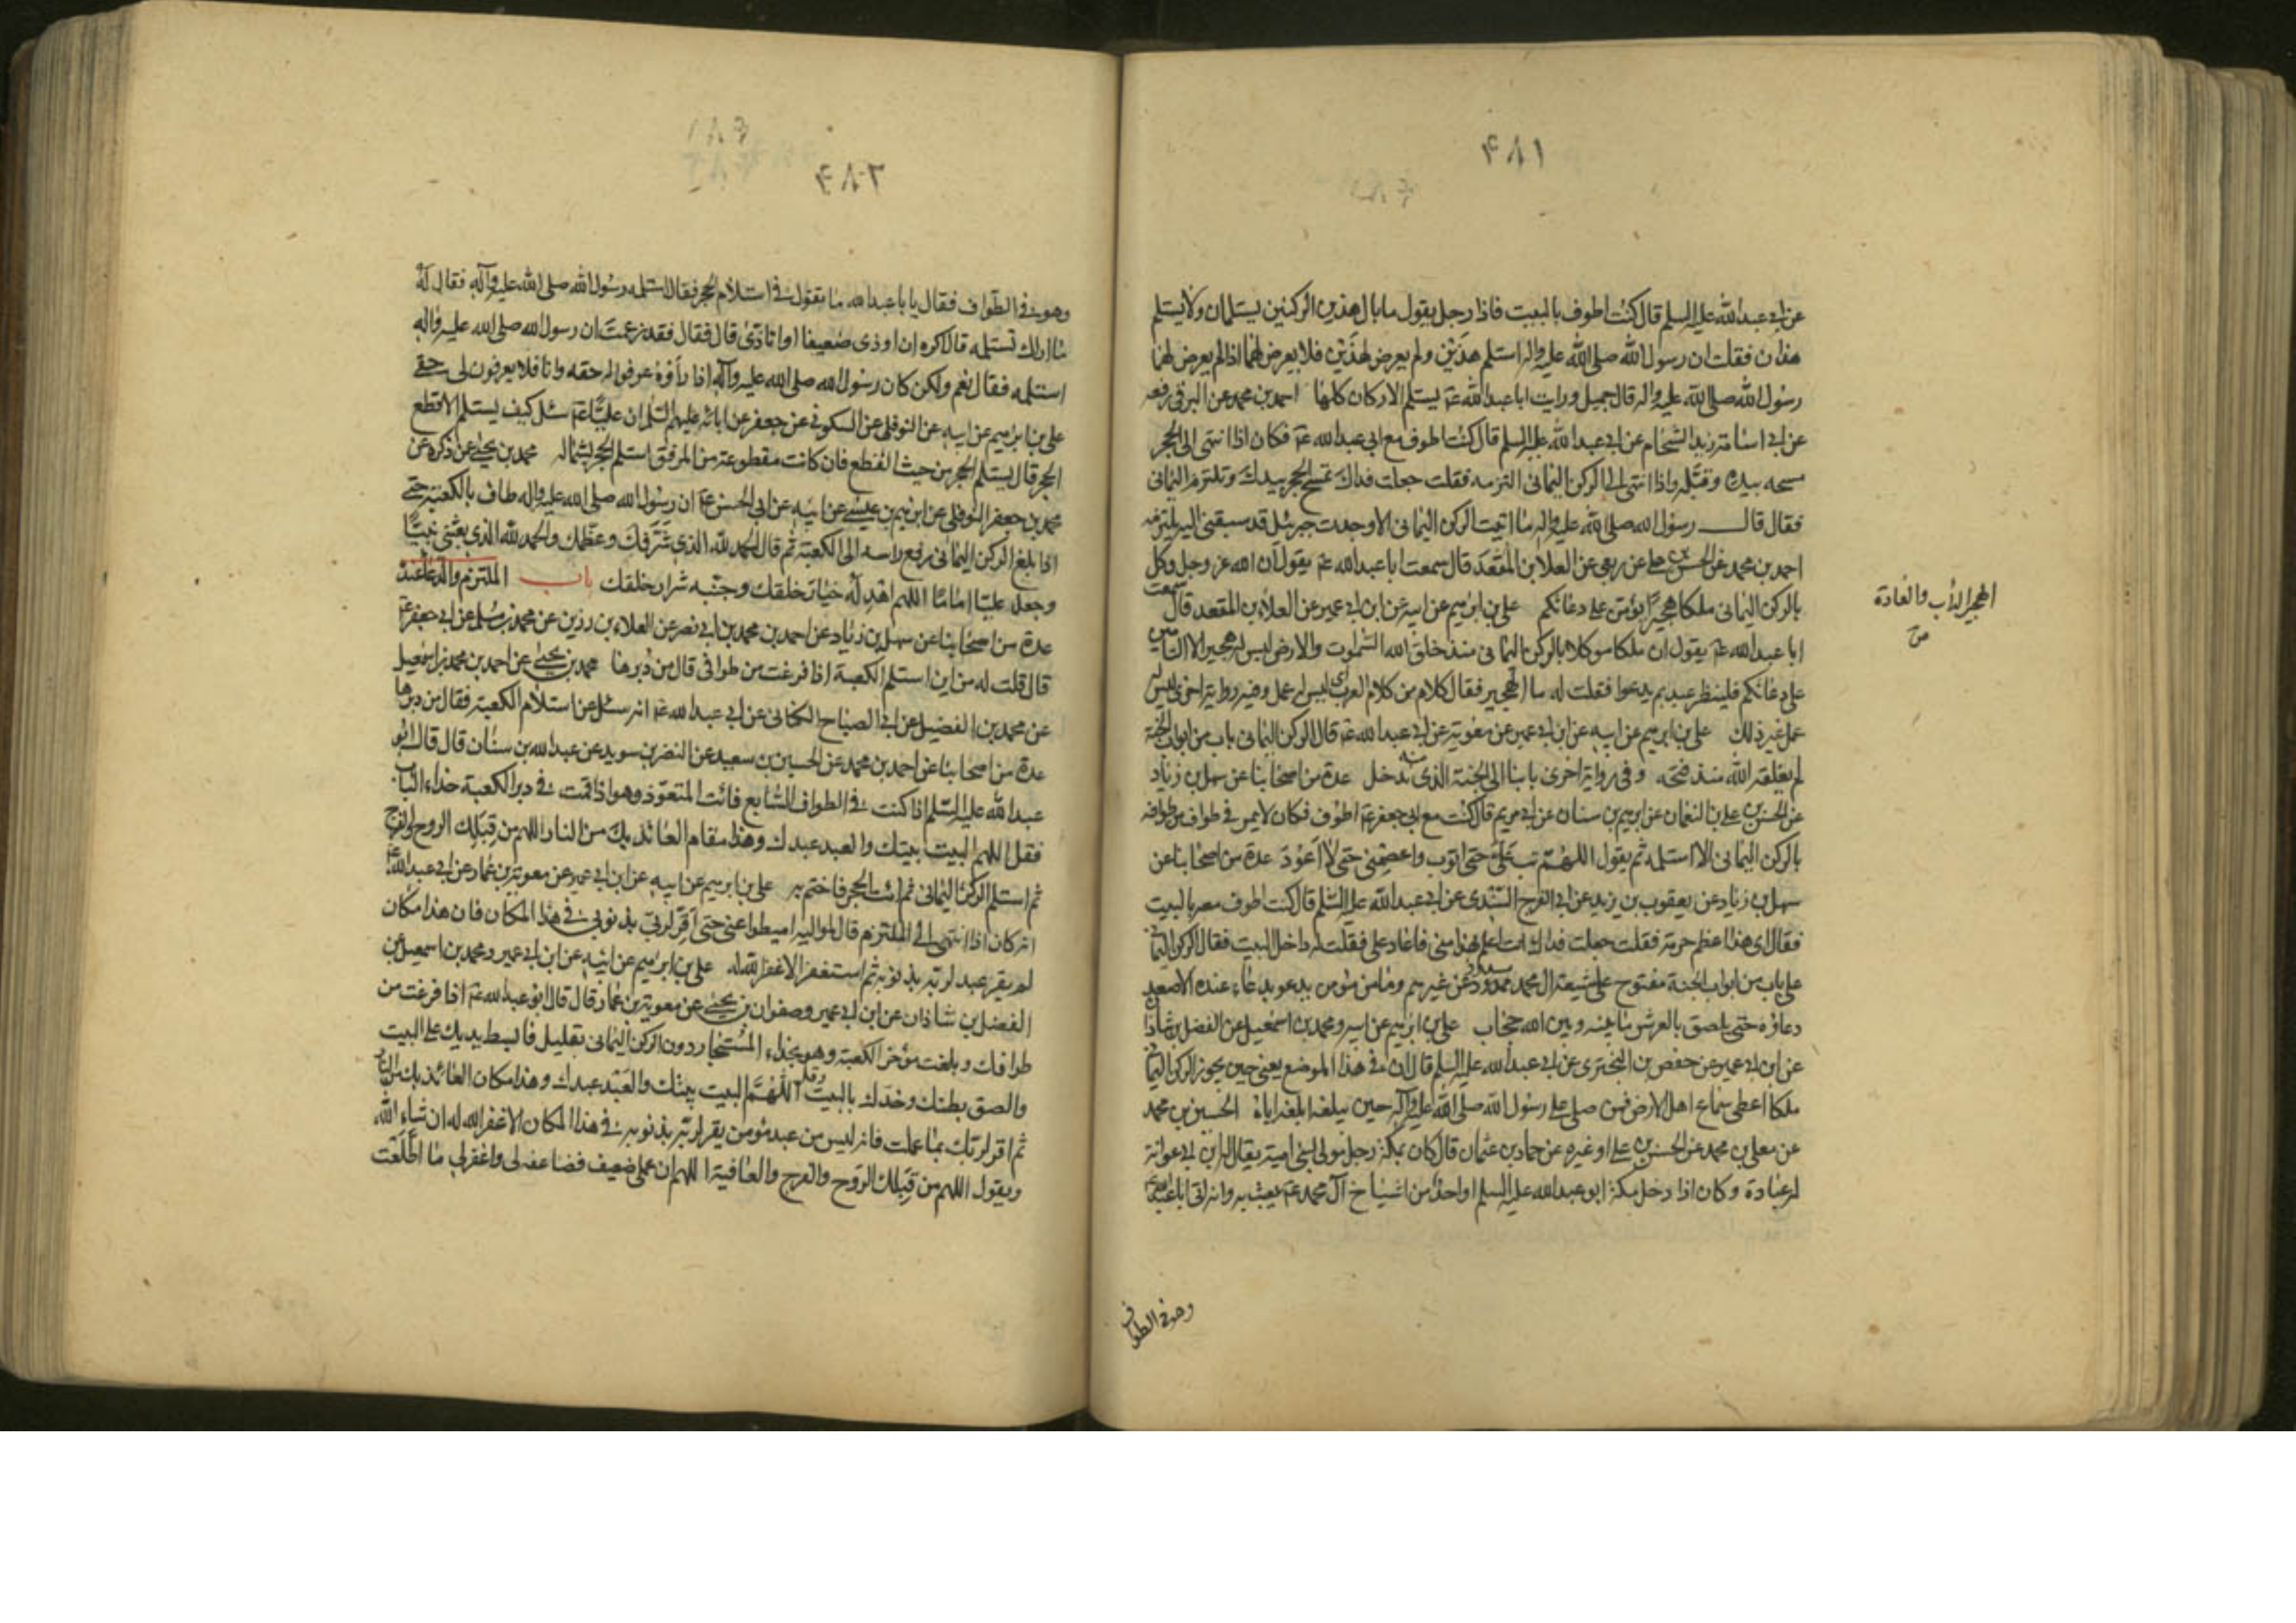 ٤٨١
عن ابى عبدالله عليه السلم قال كنت اطوف بالبيت فاذا رجل يقول ما بال هذين الركنين يستلمان ولا يستلم
هذان فقلت ان رسول الله صلى الله عليه واله استلم هذين ولم يعرض لهذين فلا يعرض لهما اذا لم يعرض لهما
رسول الله صلى الله عليه واله قال جميل ورايت ابا عبدالله عم يستلم الاركان كلها احمد بن محمد عن البرقى رفعه
عن ابى اسامة زيد الشحام عن ابى عبدالله عليه السلم قال كنت اطوف مع ابى عبدالله عم فكان اذا انتهى الى الحجر
مسحه بيده وقبّله واذا انتهى الى الركن اليمانى التزمه فقلت جعلت فداك تمسح الحجر بيدك وتلتزم اليمانى
فقال قال رسول الله صلى الله عليه واله ما اتيت الركن اليمانى الا وجدت جبرئيل قد سبقنى اليه يلتزمه
احمد بن محمد عن الحسن بن على عن ربعى عن العلا بن المقعد قال سمعت ابا عبدالله عم يقول ان الله عز وجل وكل
بالركن اليمانى ملكا هجيرا يؤمن على دعائكم على بن ابرهيم عن ابيه عن ابن ابى عمير عن العلاء بن المقعد قال سمعت
ابا عبدالله عم يقول ان ملكا موكلا بالركن اليمانى منذ خلق الله السموات والارض ليس له هجير الا التامين
على دعائكم فلينظر عبد بم يدعوا فقلت له ما الهجير فقال كلام من كلام العرب اى ليس له عمل وفى رواية اخرى ليس له
عمل غير ذلك على بن ابرهيم عن ابيه عن ابن ابى عمير عن معوية عن ابى عبدالله عم قال الركن اليمانى باب من ابواب الجنة
لم يغلقه الله منذ فتحه وفى رواية اخرى بابنا الى الجنة الذى منه ندخل عدة من اصحابنا عن سهل بن زياد
عن الحسن بن على بن النعمان عن ابرهيم بن سنان عن ابى مريم قال كنت مع ابى جعفر عم اطوف فكان لا يمر فى طواف من طوافه
بالركن اليمانى الا استلمه ثم يقول اللهم تب علىّ حتى اتوب واعصمنى حتى لا اعود عدة من اصحابنا عن
سهل بن زياد عن يعقوب بن يزيد عن ابى الفرج السندى عن ابى عبدالله عليه السلم قال كنت اطوف معه بالبيت
فقال اى هذا اعظم حرمة فقلت جعلت فداك انت اعلم بهذا منى فاعاد على فقلت له داخل البيت فقال الركن اليمانى
على باب من ابواب الجنة مفتوح على شيعة ال محمد مسدود عن غيرهم وما من مؤمن يدعو بدعاء عنده الا صعد
دعاؤه حتى يلصق بالعرش ما بينه وبين الله حجاب على بن ابرهيم عن ابيه ومحمد بن اسمعيل عن الفضل بن شاذان
عن ابن ابى عمير عن حفص بن البخترى عن ابى عبدالله عليه السلم قال ان فى هذا الموضع يعنى حين يجوز الركن اليمانى
ملكا اعطى سماع اهل الارض فمن صلى على رسول الله صلى الله عليه وآله حين يبلغه ابلغه اياه الحسين بن محمد
عن معلى بن محمد عن الحسن بن على او غيره عن حماد بن عثمان قال كان بمكة رجل مولى لبنى امية يقال له ابن ابى عوانة
له عبادة وكان اذا دخل مكة ابو عبدالله عليه السلم او احد من اشياخ آل محمد عم يعبث به وانه اتى ابا عبدالله عم
وهو فى الطواف
الهجير الدأب والعادة
ص
٤٨٢
وهو فى الطواف فقال يا ابا عبدالله ما تقول فى استلام الحجر فقال استلمه رسول الله صلى الله عليه وآله فقال له
ما اراك تستلمه قال اكره ان اوذى ضعيفا او اتاذى قال فقال فقد زعمت ان رسول الله صلى الله عليه واله
استلمه فقال نعم ولكن كان رسول الله صلى الله عليه وآله اذا رأوه عرفوا له حقه وانا فلا يعرفون لى حقى
على بن ابرهيم عن ابيه عن النوفلى عن السكونى عن جعفر عن ابائه عليهم السلم ان عليّا عم سئل كيف يستلم الاقطع
الحجر قال يستلم الحجر من حيث القطع فان كانت مقطوعة من المرفق استلم الحجر بشماله محمد بن يحيى عن ذكره عن
محمد بن جعفر النوفلى عن ابرهيم بن عيسى عن ابيه عن ابى الحسن عم ان رسول الله صلى الله عليه واله طاف بالكعبة حتى
اذا بلغ الركن اليمانى رفع راسه الى الكعبة ثم قال الحمد لله الذى شرّفك وعظّمك والحمد لله الذى بعثنى نبيّا
وجعل عليّا اماما اللهم اهد له خيار خلقك وجنّبه شرار خلقك باب الملتزم والدعاء عنده
عدة من اصحابنا عن سهل بن زياد عن احمد بن محمد بن ابى نصر عن العلاء بن رزين عن محمد بن مسلم عن ابى جعفر عم
قال قلت له من اين استلم الكعبة اذا فرغت من طوافى قال من دبرها محمد بن يحيى عن احمد بن محمد بن اسمعيل
عن محمد بن الفضيل عن ابى الصباح الكنانى عن ابى عبدالله عم انه سئل عن استلام الكعبة فقال من دبرها
عدة من اصحابنا عن احمد بن محمد عن الحسين بن سعيد عن النضر بن سويد عن عبدالله بن سنان قال قال ابو
عبدالله عليه السلم اذا كنت فى الطواف السابع فائت المتعوّذ وهو اذا قمت فى دبر الكعبة حذاء الباب
فقل اللهم البيت بيتك والعبد عبدك وهذا مقام العائذ بك من النار اللهم من قبلك الروح والفرج
ثم استلم الركن اليمانى ثم ائت الحجر فاختم به على بن ابرهيم عن ابيه عن ابن ابى عمير عن معوية بن عمار عن ابى عبدالله عم
انه كان اذا انتهى الى الملتزم قال لمواليه اميطوا عنى حتى اقر لربى بذنوبى فى هذا المكان فان هذا مكان
لم يقر عبد لربه بذنوبه ثم استغفر الا غفر الله له على بن ابرهيم عن ابيه عن ابن ابى عمير ومحمد بن اسمعيل عن
الفضل بن شاذان عن ابن ابى عمير وصفوان بن يحيى عن معوية بن عمار قال قال ابو عبدالله عم اذا فرغت من
طوافك وبلغت مؤخر الكعبة وهو بحذاء المستجار دون الركن اليمانى بقليل فابسط يديك على البيت
والصق بطنك وخدك بالبيت وقل اللهم البيت بيتك والعبد عبدك وهذا مكان العائذ بك من النار
ثم اقر لربك بما عملت فانه ليس من عبد مؤمن يقر لربه بذنوبه فى هذا المكان الا غفر الله له ان شاء الله
ويقول اللهم من قبلك الروح والفرج والعافية اللهم ان عملى ضعيف فضاعفه لى واغفر لى ما اطلعت